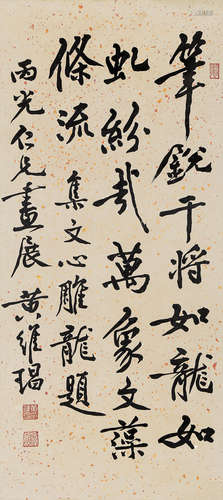 筆銳干將如龍如
虬紛哉萬象文藻
條流 集文心雕龍題
丙光仁兄畫展 黃維琩